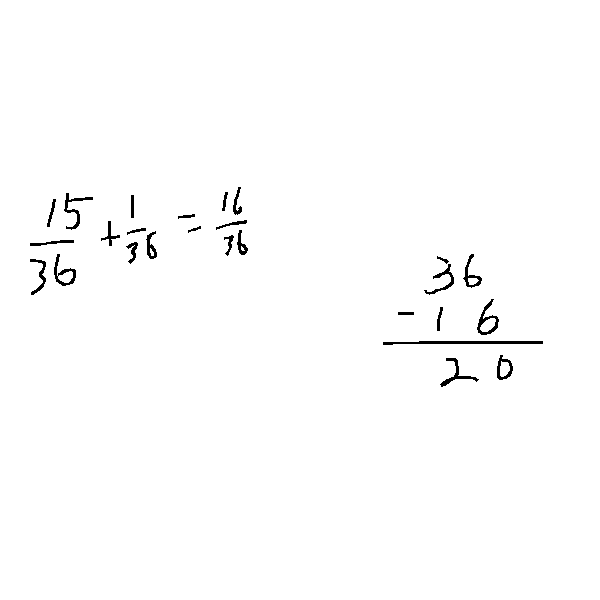 15/36 + 1/36 = 16/36
36
- 16
20